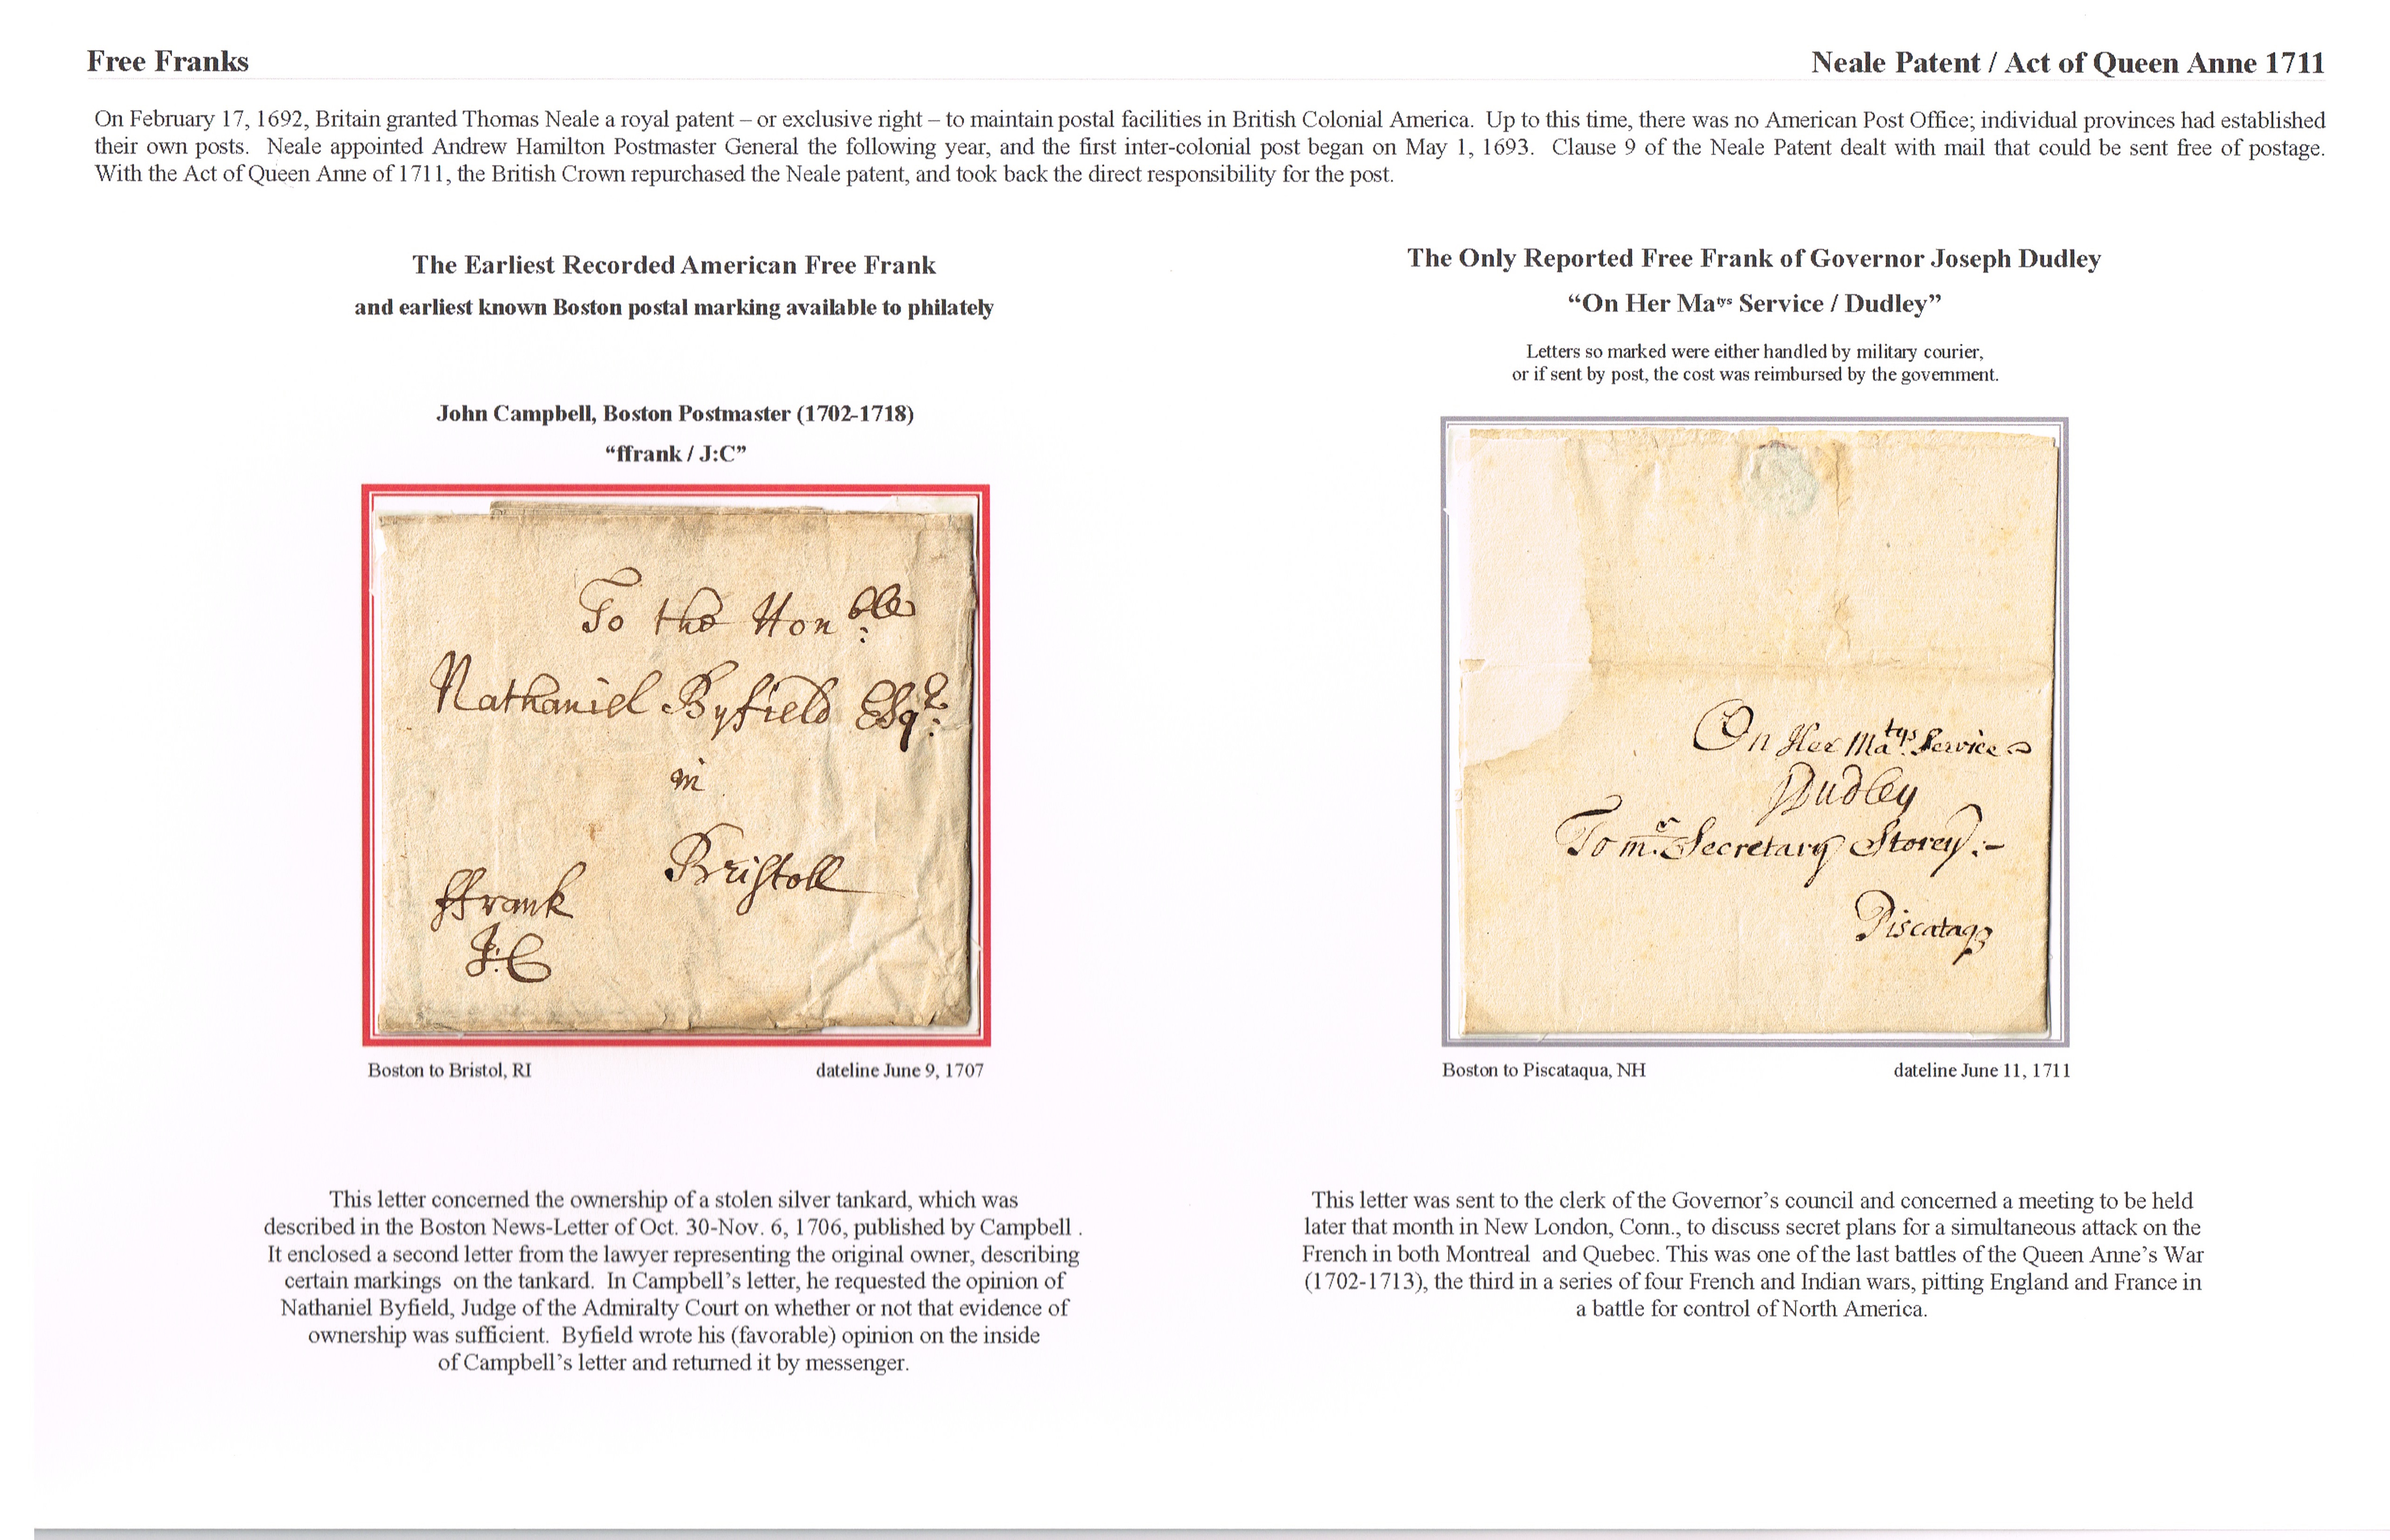 Free Franks
Neale Patent / Act of Queen Anne 1711
On February 17, 1692, Britain granted Thomas Neale a royal patent – or exclusive right – to maintain postal facilities in British Colonial America. Up to this time, there was no American Post Office; individual provinces had established
their own posts. Neale appointed Andrew Hamilton Postmaster General the following year, and the first inter-colonial post began on May 1, 1693. Clause 9 of the Neale Patent dealt with mail that could be sent free of postage.
With the Act of Queen Anne of 1711, the British Crown repurchased the Neale patent, and took back the direct responsibility for the post.
The Earliest Recorded American Free Frank
and earliest known Boston postal marking available to philately
John Campbell, Boston Postmaster (1702-1718)
“ffrank / J:C”
To the Hon:ble
Nathaniel Byfield Esqr:
in
Bristoll
ffrank
J:C
Boston to Bristol, RI
dateline June 9, 1707
This letter concerned the ownership of a stolen silver tankard, which was
described in the Boston News-Letter of Oct. 30-Nov. 6, 1706, published by Campbell .
It enclosed a second letter from the lawyer representing the original owner, describing
certain markings on the tankard. In Campbell’s letter, he requested the opinion of
Nathaniel Byfield, Judge of the Admiralty Court on whether or not that evidence of
ownership was sufficient. Byfield wrote his (favorable) opinion on the inside
of Campbell’s letter and returned it by messenger.
The Only Reported Free Frank of Governor Joseph Dudley
“On Her Matys Service / Dudley”
Letters so marked were either handled by military courier,
or if sent by post, the cost was reimbursed by the government.
On Her Matys Service
Dudley
To mr. Secretary Storey:-
Piscataq
Boston to Piscataqua, NH
dateline June 11, 1711
This letter was sent to the clerk of the Governor’s council and concerned a meeting to be held
later that month in New London, Conn., to discuss secret plans for a simultaneous attack on the
French in both Montreal and Quebec. This was one of the last battles of the Queen Anne’s War
(1702-1713), the third in a series of four French and Indian wars, pitting England and France in
a battle for control of North America.